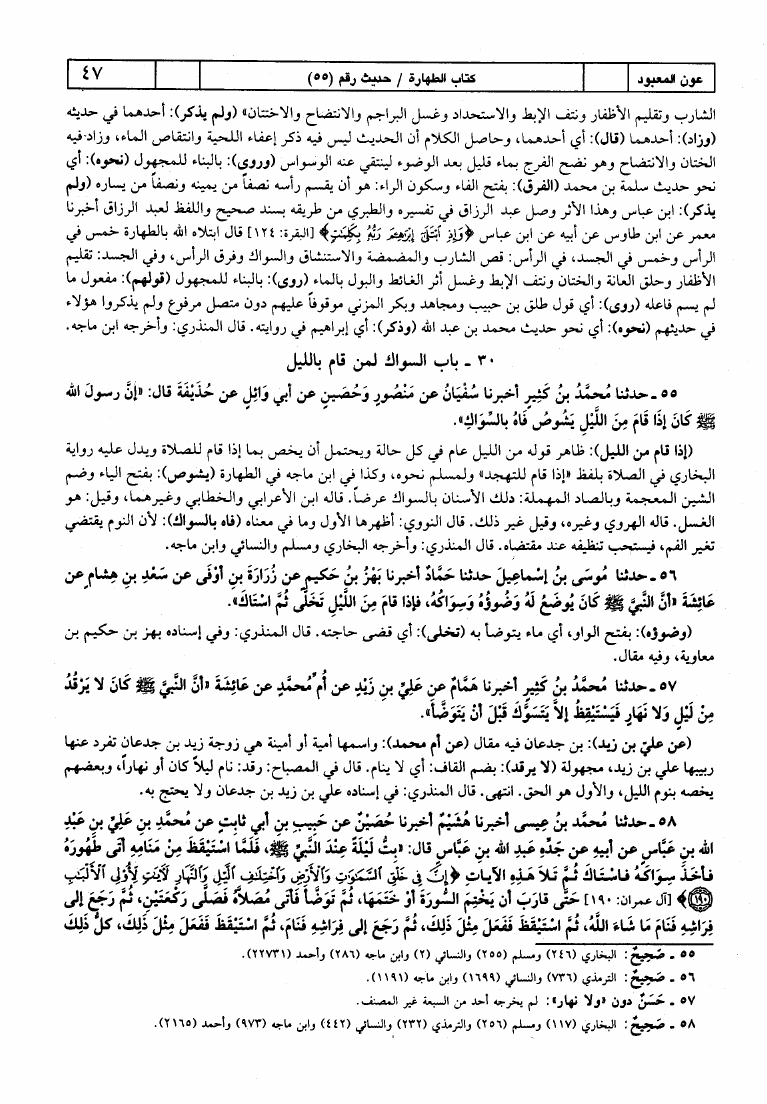 عون المعبود كتاب الطهارة / حديث رقم (٥٥) ٤٧
الشارب وتقليم الأظفار ونتف الإبط والاستحداد وغسل البراجم والانتضاح والاختتان» (ولم يذكر): أحدهما في حديثه
(وزاد): أحدهما (قال): أي أحدهما، وحاصل الكلام أن الحديث ليس فيه ذكر إعفاء اللحية وانتقاص الماء، وزاد فيه
الختان والانتضاح وهو نضح الفرج بماء قليل بعد الوضوء لينتفي عنه الوسواس (وروي): بالبناء للمجهول (نحوه): أي
نحو حديث سلمة بن محمد (الفرق): بفتح الفاء وسكون الراء: هو أن يقسم رأسه نصفاً من يمينه ونصفاً من يساره (ولم
يذكر): ابن عباس وهذا الأثر وصل عبد الرزاق في تفسيره والطبري من طريقه بسند صحيح واللفظ لعبد الرزاق أخبرنا
معمر عن ابن طاوس عن أبيه عن ابن عباس ﴿وَإِذِ ابْتَلَىٰ إِبْرَاهِيمَ رَبُّهُ بِكَلِمَاتٍ﴾ [البقرة: ١٢٤] قال ابتلاه الله بالطهارة خمس في
الرأس وخمس في الجسد، في الرأس: قص الشارب والمضمضة والاستنشاق والسواك وفرق الرأس، وفي الجسد: تقليم
الأظفار وحلق العانة والختان ونتف الإبط وغسل أثر الغائط والبول بالماء (روي): بالبناء للمجهول (قولهم): مفعول ما
لم يسم فاعله (روى): أي قول طلق بن حبيب ومجاهد وبكر المزني موقوفاً عليهم دون متصل مرفوع ولم يذكروا هؤلاء
في حديثهم (نحوه): أي نحو حديث محمد بن عبد الله (وذكر): أي إبراهيم في روايته. قال المنذري: وأخرجه ابن ماجه.
٣٠ ـ باب السواك لمن قام بالليل
٥٥ ـ حدثنا مُحمَّدُ بنُ كَثِيرٍ أخبرنا سُفْيَانُ عن مَنْصُورٍ وَحُصَينٍ عن أبي وَائِلٍ عن حُذَيْفَةَ قال: «إنَّ رسولَ الله
ﷺ كَانَ إذَا قَامَ مِنَ اللَّيْلِ يَشُوصُ فَاهُ بالسِّوَاكِ».
(إذا قام من الليل): ظاهر قوله من الليل عام في كل حالة ويحتمل أن يخص بما إذا قام للصلاة ويدل عليه رواية
البخاري في الصلاة بلفظ «إذا قام للتهجد» ولمسلم نحوه، وكذا في ابن ماجه في الطهارة (يشوص): بفتح الياء وضم
الشين المعجمة وبالصاد المهملة: دلك الأسنان بالسواك عرضاً. قاله ابن الأعرابي والخطابي وغيرهما، وقيل: هو
الغسل. قاله الهروي وغيره، وقيل غير ذلك. قال النووي: أظهرها الأول وما في معناه (فاه بالسواك): لأن النوم يقتضي
تغير الفم، فيستحب تنظيفه عند مقتضاه. قال المنذري: وأخرجه البخاري ومسلم والنسائي وابن ماجه.
٥٦ ـ حدثنا مُوسَى بنُ إسْمَاعِيلَ حدثنا حَمَّادٌ أخبرنا بَهْزُ بنُ حَكيمٍ عن زُرَارَةَ بنِ أَوْفَى عن سَعْدِ بنِ هِشَامٍ عن
عَائِشَةَ «أنَّ النَّبيَّ ﷺ كَانَ يُوضَعُ لَهُ وَضُوؤُهُ وَسِوَاكُهُ، فإذا قامَ مِنَ اللَّيْلِ تَخَلَّى ثُمَّ اسْتَاكَ».
(وضوؤه): بفتح الواو، أي ماء يتوضأ به (تخلى): أي قضى حاجته. قال المنذري: وفي إسناده بهز بن حكيم بن
معاوية، وفيه مقال.
٥٧ ـ حدثنا مُحمَّدُ بنُ كَثِيرٍ أخبرنا هَمَّامٌ عن عَلِيِّ بنِ زَيْدٍ عن أُمِّ مُحمَّدٍ عن عَائِشَةَ «أنَّ النَّبيَّ ﷺ كَانَ لا يَرْقُدُ
مِنْ لَيْلٍ وَلا نَهارٍ فَيَسْتَيْقِظُ إلاَّ يَتَسَوَّكُ قَبْلَ أنْ يَتَوَضَّأَ».
(عن عليّ بن زيد): بن جدعان فيه مقال (عن أم محمد): واسمها أمية أو أمينة هي زوجة زيد بن جدعان تفرد عنها
ربيبها علي بن زيد، مجهولة (لا يرقد): بضم القاف: أي لا ينام. قال في المصباح: رقد: نام ليلاً كان أو نهاراً، وبعضهم
يخصه بنوم الليل، والأول هو الحق. انتهى. قال المنذري: في إسناده علي بن زيد بن جدعان ولا يحتج به.
٥٨ ـ حدثنا مُحمَّد بنُ عِيسى أخبرنا هُشَيْمٌ أخبرنا حُصَيْنٌ عن حَبِيبِ بنِ أبي ثابتٍ عن مُحمَّدِ بنِ عَلِيِّ بنِ عَبْدِ
الله بنِ عَبَّاسٍ عن أبيهِ عن جَدِّهِ عَبدِ اللهِ بنِ عَبَّاسٍ قال: «بِتُّ لَيْلَةً عِنْدَ النَّبيِّ ﷺ، فَلَمَّا اسْتَيْقَظَ مِنْ مَنَامِهِ أتَى طَهُورَهُ
فأخَذَ سِوَاكَهُ فاسْتَاكَ ثُمَّ تَلاَ هَذِهِ الآياتِ ﴿إِنَّ فِي خَلْقِ السَّمَاوَاتِ وَالْأَرْضِ وَاخْتِلَافِ اللَّيْلِ وَالنَّهَارِ لَآيَاتٍ لِأُولِي الْأَلْبَابِ
﴿١٩٠﴾﴾ [آل عمران: ١٩٠] حَتَّى قارَبَ أن يَخْتِمَ السُّورَةَ أوْ خَتَمَها، ثُمَّ تَوَضَّأَ فأتَى مُصَلاَّهُ فَصَلَّى رَكْعَتَيْنِ، ثُمَّ رَجَعَ إلى
فِرَاشِهِ فَنَامَ مَا شَاءَ اللَّهُ، ثُمَّ اسْتَيْقَظَ فَفَعَلَ مِثْلَ ذَلِكَ، ثُمَّ رَجَعَ إلى فِرَاشِهِ فَنَامَ، ثُمَّ اسْتَيْقَظَ فَفَعَلَ مِثْلَ ذَلِكَ، كلُّ ذَلِكَ
٥٥ ـ صَحِيحٌ: البخاري (٢٤٦) ومسلم (٢٥٥) والنسائي (٢) وابن ماجه (٢٨٦) وأحمد (٢٢٧٣١).
٥٦ ـ صَحِيحٌ: الترمذي (٧٣٦) والنسائي (١٦٩٩) وابن ماجه (١١٩١).
٥٧ ـ حَسَنٌ دون «ولا نهار»: لم يخرجه أحد من السبعة غير المصنف.
٥٨ ـ صَحِيحٌ: البخاري (١١٧) ومسلم (٢٥٦) والترمذي (٢٣٢) والنسائي (٤٤٢) وابن ماجه (٩٧٣) وأحمد (٢١٦٥).